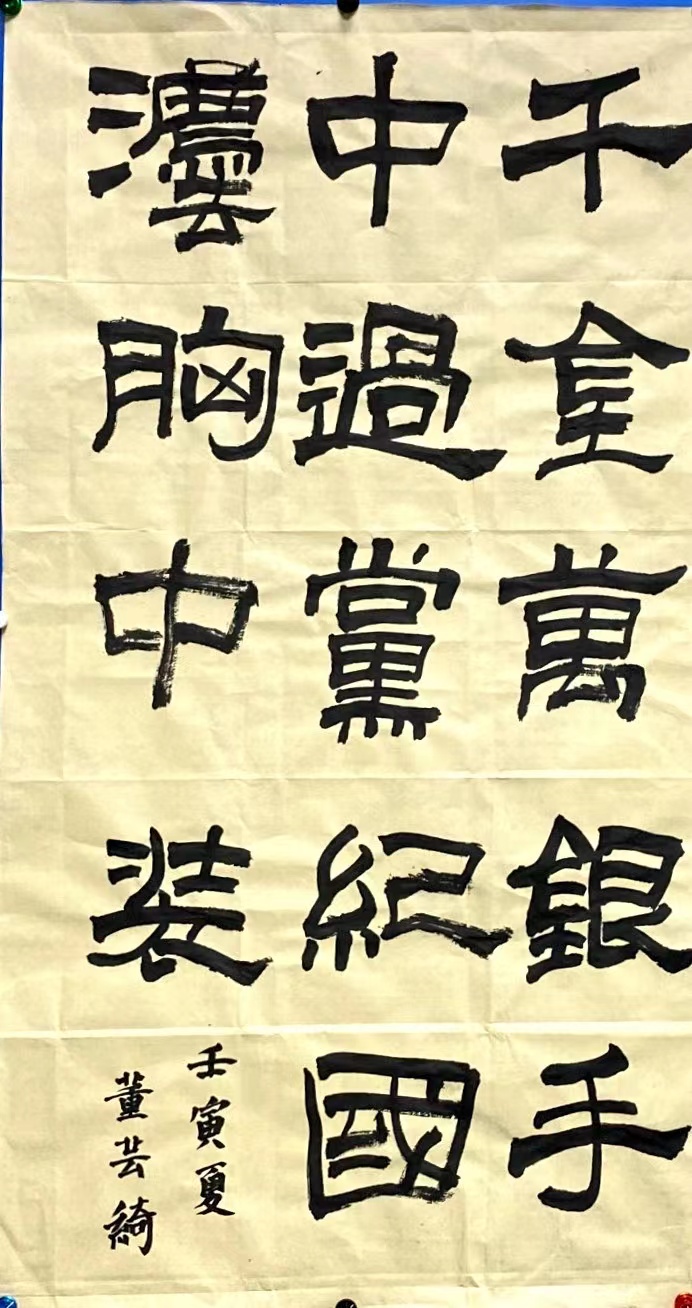 千金萬銀手
中過黨紀國
灋胸中裝
壬寅夏
董芸綺